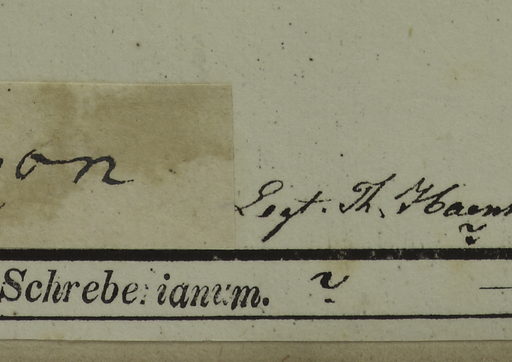 on
Legt. Th. Haen
Schreberianum.